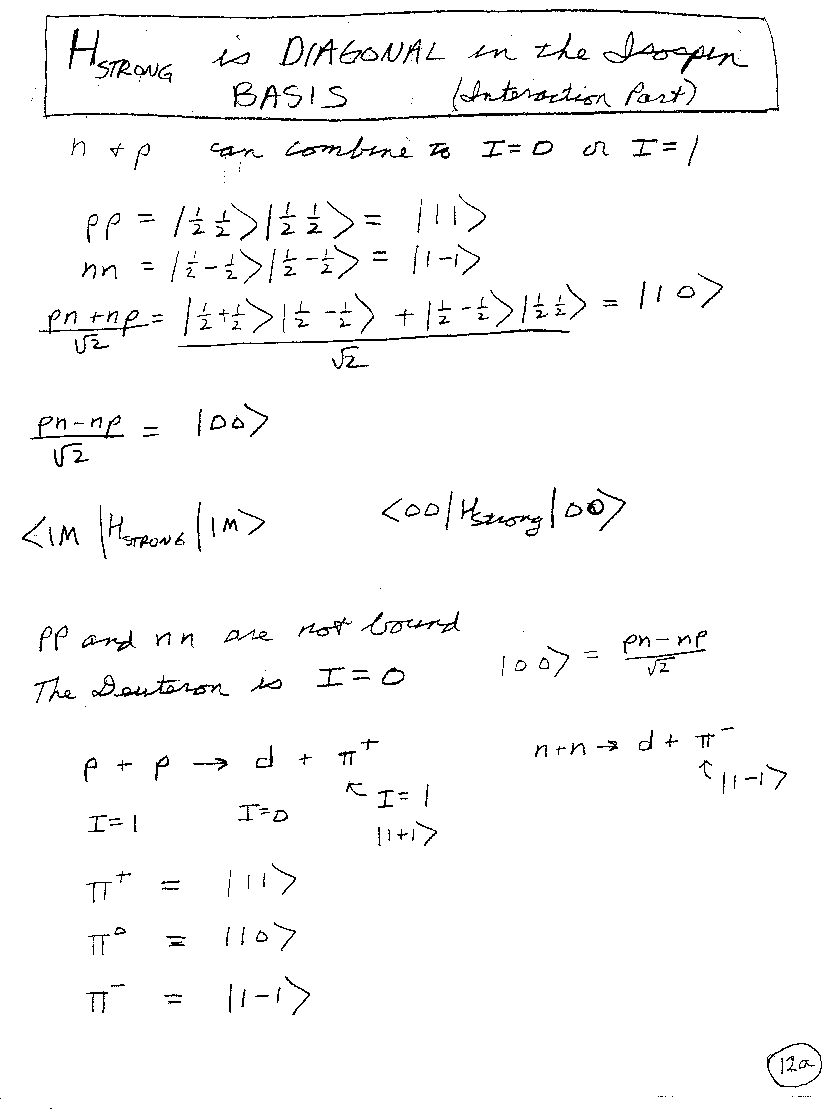 H_STRONG is DIAGONAL in the Isospin
BASIS (Interaction Part)
n + p can combine to I=0 or I=1
pp = |½ ½>|½ ½> = |1 1>
nn = |½ -½>|½ -½> = |1 -1>
(pn + np)/√2 = (|½ +½>|½ -½> + |½ -½>|½ ½>)/√2 = |1 0>
(pn - np)/√2 = |00>
<1M|H_STRONG|1M> <00|H_strong|00>
pp and nn are not bound
|00> = (pn - np)/√2
The Deuteron is I=0
p + p → d + π⁺ n+n → d + π⁻
I=1 I=0 ↖ I=1 ↑ |1-1>
|1+1>
π⁺ = |11>
π⁰ = |10>
π⁻ = |1-1>
12a